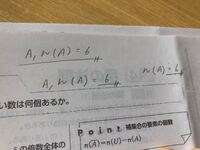 A, n(A) = 6
A, n(A) = 6
n(A) = 6
い数は何個あるか。
Point 補集合の要素の個数
の倍数全体の
n(A̅)=n(U)−n(A)